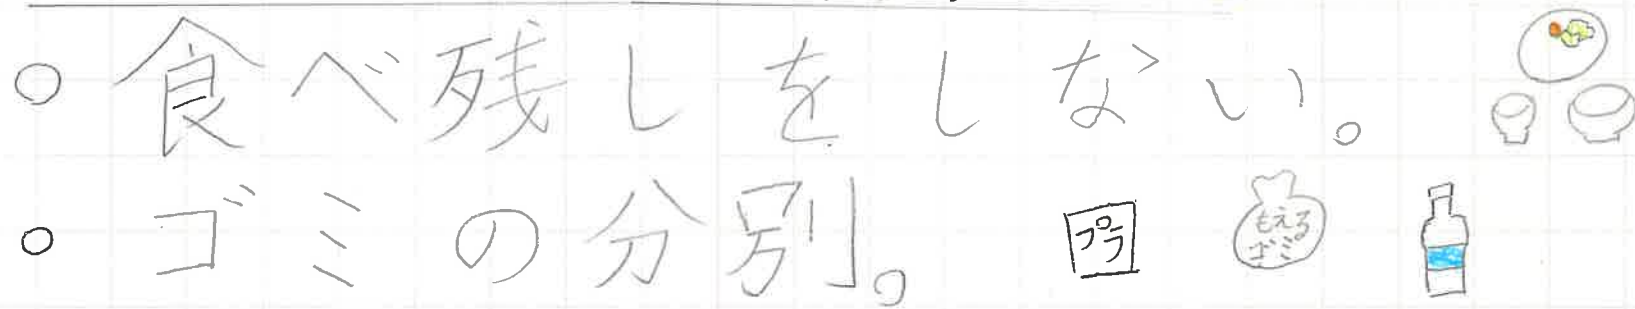 ○食べ残しをしない。
○ゴミの分別。 プラ もえるゴミ